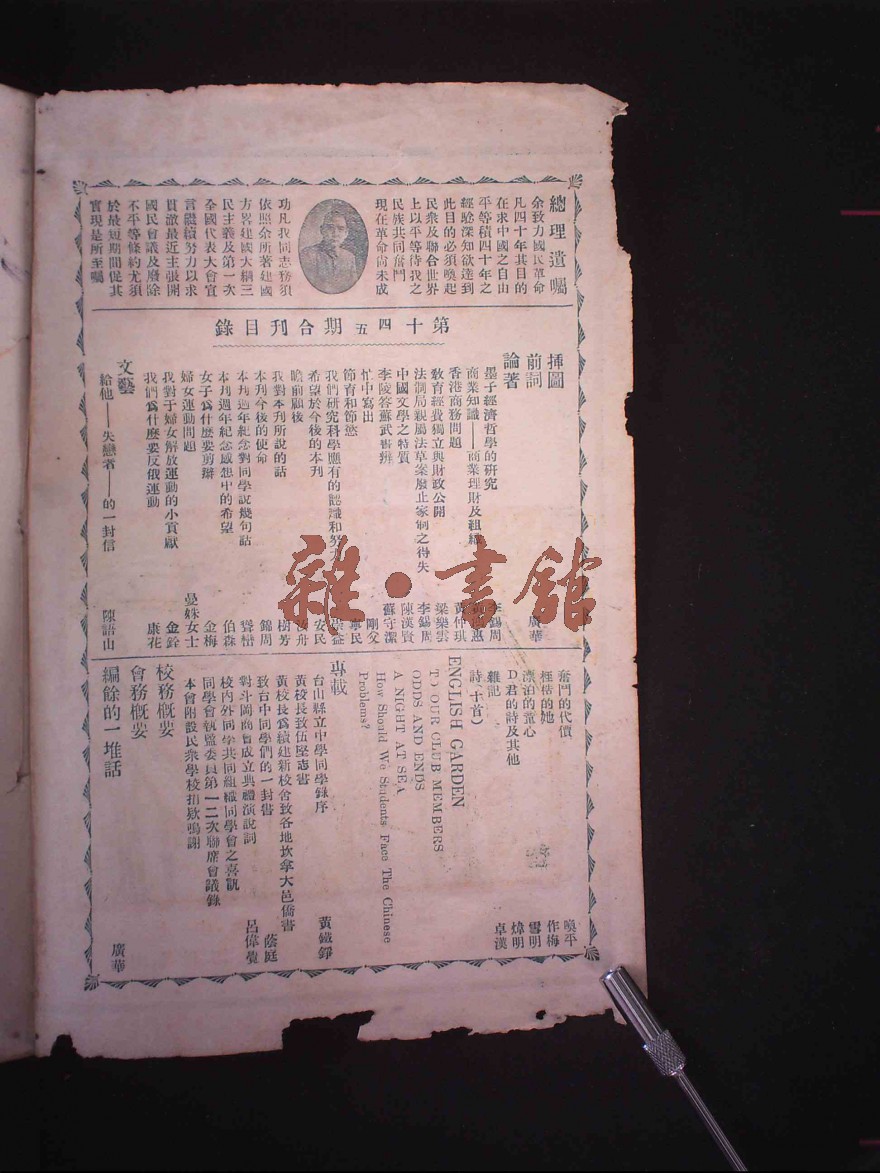 總理遺囑
余致力國民革命
凡四十年其目的
在求中國之自由
平等積四十年之
經驗深知欲達到
此目的必須喚起
民衆及聯合世界
上以平等待我之
民族共同奮鬥
現在革命尚未成
功凡我同志務須
依照余所著建國
方畧建國大綱三
民主義及第一次
全國代表大會宣
言繼續努力以求
貫澈最近主張開
國民會議及廢除
不平等條約尤須
於最短期間促其
實現是所至囑
第十四五期合刊目錄
揷圖
前詞 廣華
論著
墨子經濟哲學的研究 李錫周
商業知識——商業理財及組織
香港商務問題 黃仲琪
敎育經費獨立與財政公開 梁樂雲
法制局親屬法草案廢止家制之得失 李錫周
中國文學之特質 陳漢賢
李陵答蘇武書辨 蘇守潔
忙中寫出 剛父
節育和節慾 寧民
我們研究科學應有的認識和努力
希望於今後的本刊 安民
瞻前顧後 汝舟
我對本刊所說的話 樹芳
本刊今後的使命 錦周
本刋週年紀念對同學說幾句話
本刊週年紀念感想中的希望 伯森
女子爲什麽要剪辮 金梅
婦女運動問題 曼姝女士
我對于婦女解放運動的小貢獻 金鈴
我們爲什麽要反俄運動 康花
文藝
給他——失戀者——的一封信 陳語山
奮鬥的代價 喚平
桎梏的她 作梅
漂泊的童心 雪明
D君的詩及其他 煒明
雜記 卓漢
詩(十首)
ENGLISH GARDEN
TO OUR CLUB MEMBERS
ODDS AND ENDS
A NIGHT AT SEA
How Should We Students Face The Chinese
Problems?
專載
台山縣立中學同學錄序 黃鐵錚
黃校長致伍堅志書
黃校長爲續建新校舍致各地坎拿大邑僑書
致台中同學們的一封書 蔭庭
對斗岡商會成立典禮演說詞 呂偉覺
校內外同學共同組織同學會之喜訊
同學會執監委員第一二次聯席會議錄
本會附設民衆學校捐欵鳴謝
校務概要
會務概要
編餘的一堆話 廣華
雜·書舘